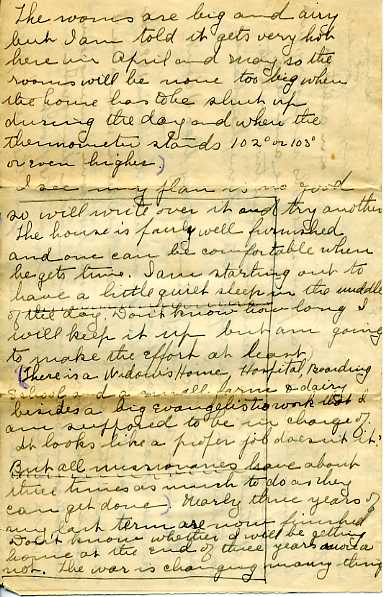 The rooms are big and airy
but I am told it gets very hot
here in April and May, so the
rooms will be none too big when
the house has to be shut up
during the day and when the
thermometer stands 102° or 103°
or even higher.)
I see my plan is no good
so will write over it and try another
The house is fairly well furnished
and one can be comfortable when
he gets time. I am starting out to
have a little quiet sleep in the middle
of the day. Don't know how long I
will keep it up but am going
to make the effort at least.
(There is a Widows Home, Hospital, Boarding
School and a small farm & dairy
besides a big Evangelistic work that I
am supposed to be in charge of.
It looks like a job doesn't it?
But all missionaries have about
three times as much to do as they
can get done.) Nearly three years of
my last term are now finished
Don't know whether I will be getting
home at the end of three years more or
not. The war is changing many thing